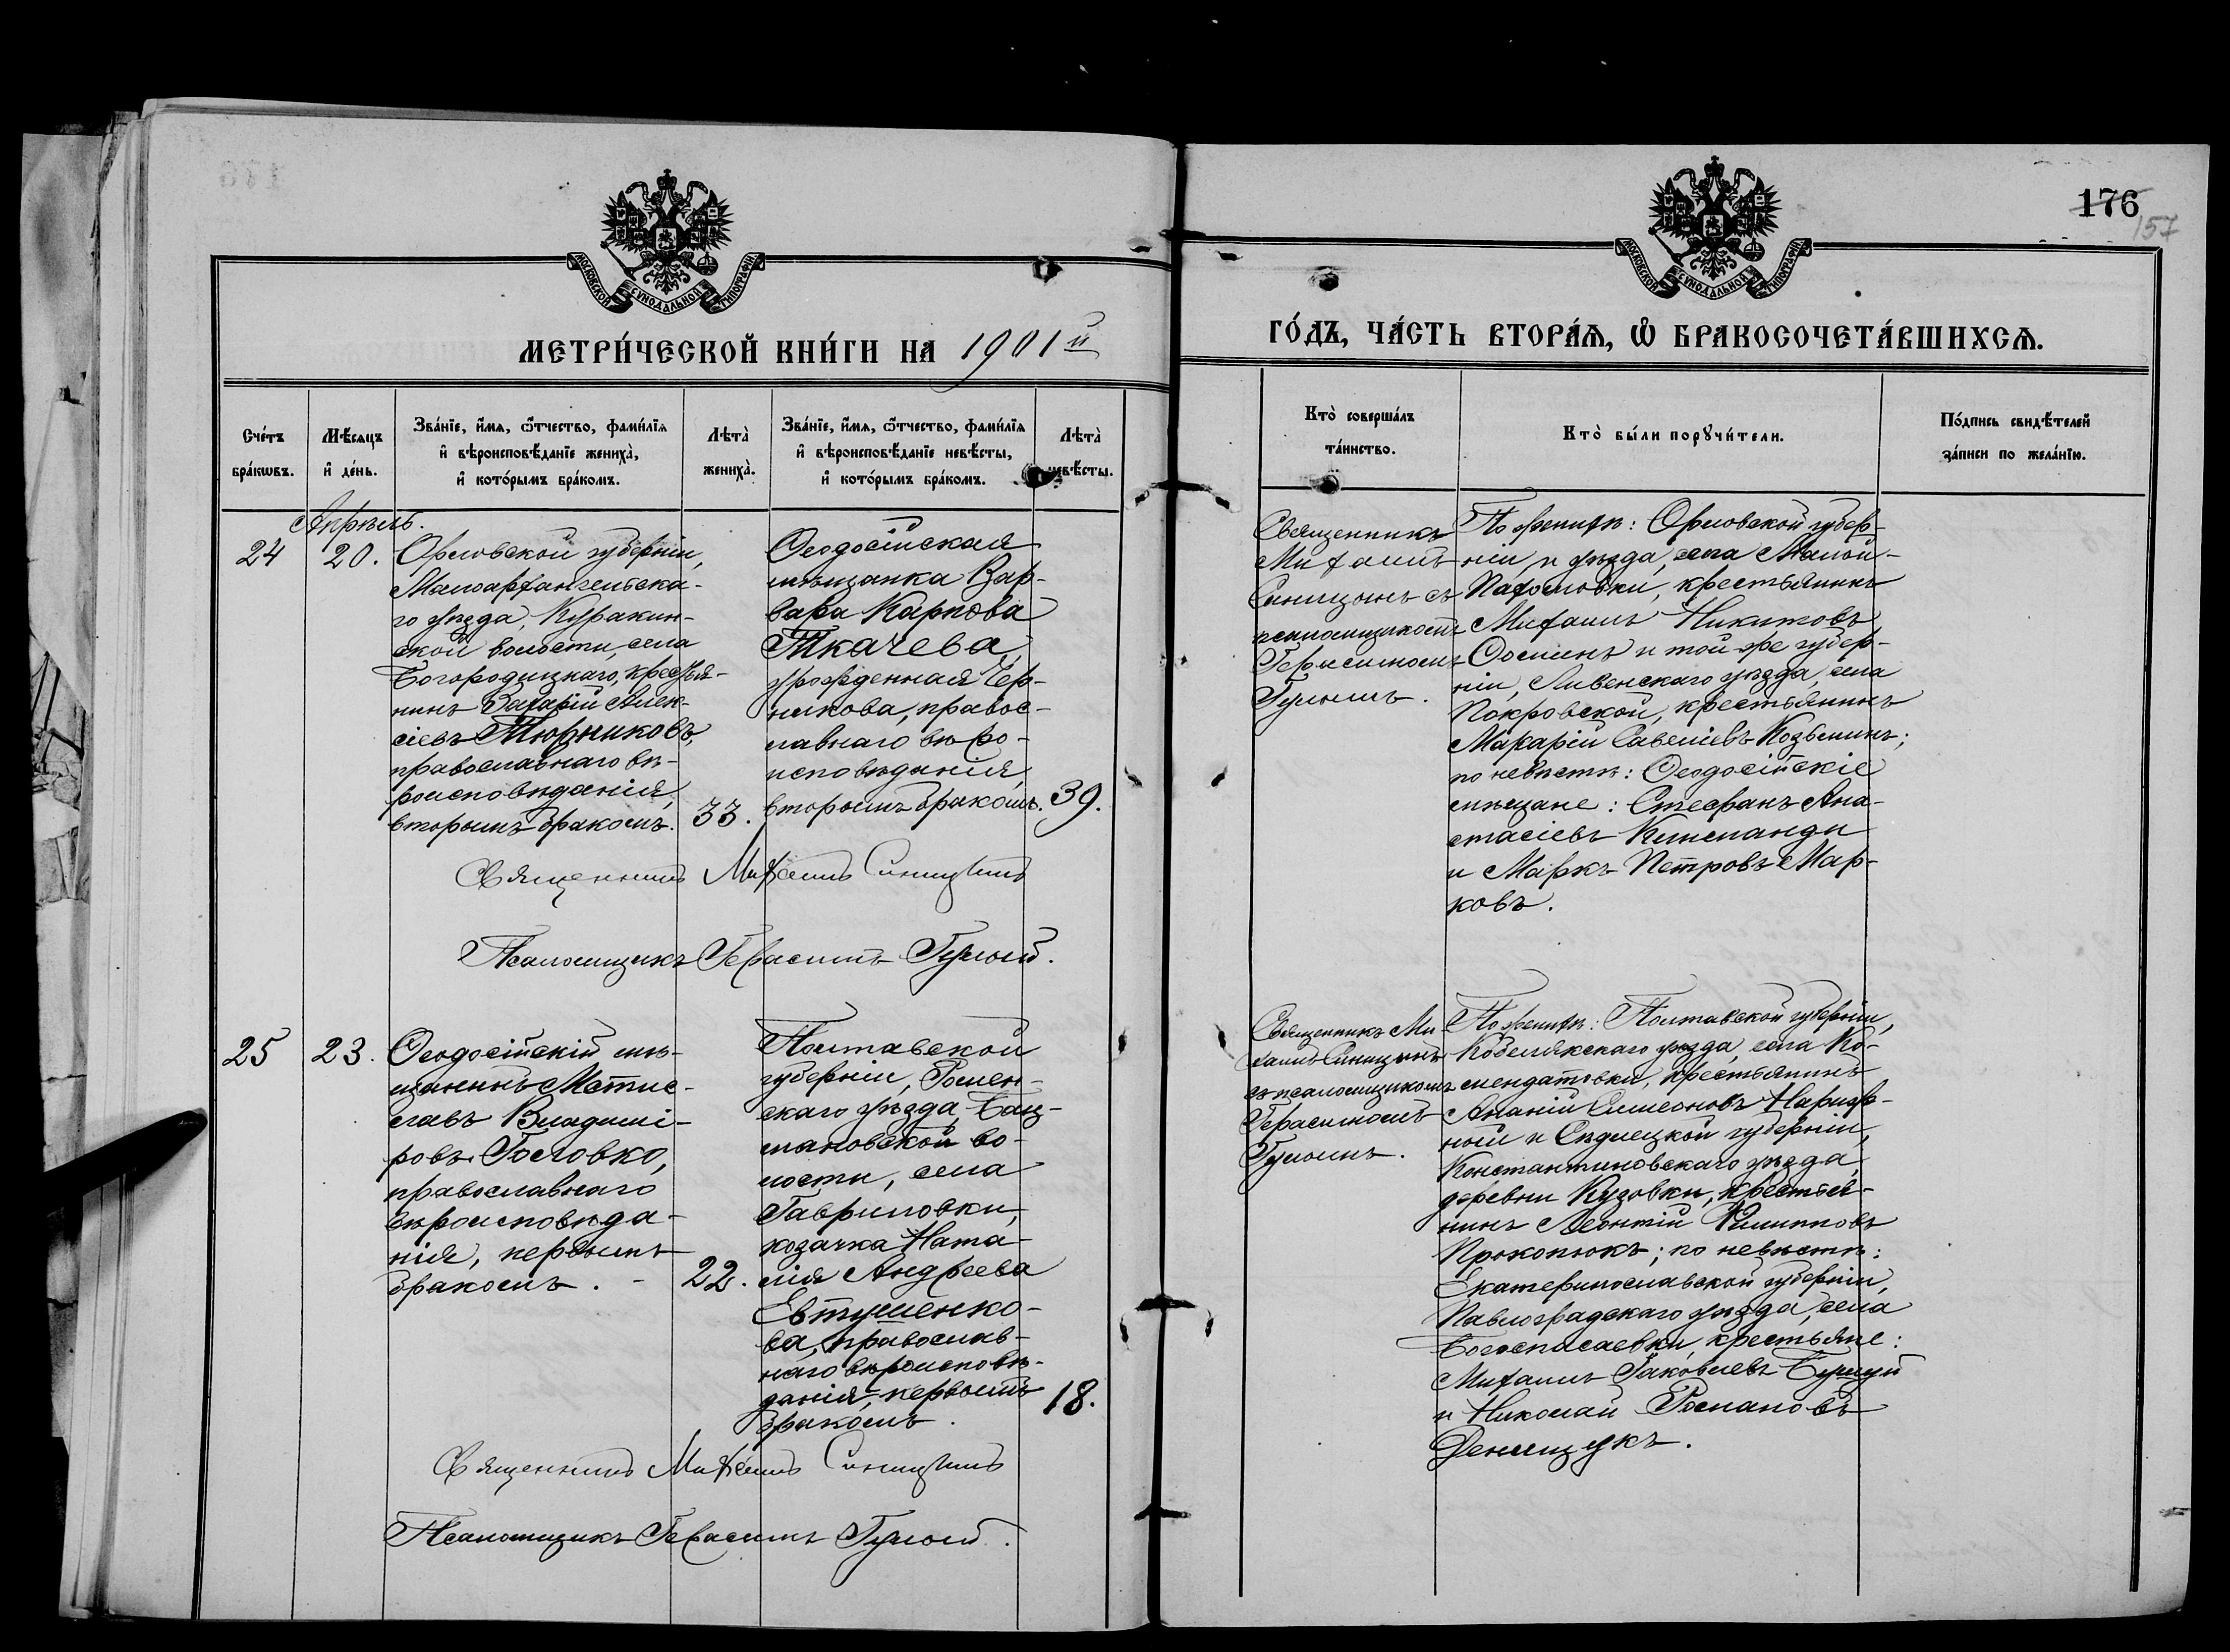 176
157
МОСКОВСКОЙ СѴНОДАЛЬНОЙ ТИПОГРАФІИ
МОСКОВСКОЙ СѴНОДАЛЬНОЙ ТИПОГРАФІИ
МЕТРИ́ЧЕСКОЙ КНИ́ГИ НА 1901й
ГО́ДЪ, ЧА́СТЬ ВТОРА́Я, Ѡ҆ БРАКОСОЧЕТА́ВШИХСЯ.
Сче́тъ бра́кѡвъ.
Мѣ́сяцъ и҆ де́нь.
Зва́нїе, и҆́мя, ѻ҆́тчество, фами́лїя и҆ вѣроисповѣ́данїе жениха̀, и҆ кото́рымъ бра́комъ.
Лѣта̀ жениха̀.
Зва́нїе, и҆́мя, ѻ҆́тчество, фами́лїя и҆ вѣроисповѣ́данїе невѣ́сты, и҆ кото́рымъ бра́комъ.
Лѣта̀ невѣ́сты.
Кто̀ соверша́лъ та́инство.
Кто̀ бы́ли порꙋчи́тели.
По́дпись свидѣ́телей за́писи по жела́нїю.
Апрѣль.
24
20.
Орловской губерніи,
Малоархангельска-
го уѣзда, Куракин-
ской волости, села
Богородицкаго, крестья-
нинъ Захарій Алек-
сіевъ Тюрниковъ,
православнаго вѣ-
роисповѣданія,
вторымъ бракомъ.
33.
Ѳеодосійская
мѣщанка Вар-
вара Карпова
Ткачева,
урожденная Чер-
никова, правос-
лавнаго вѣро-
исповѣданія,
вторымъ бракомъ.
39.
Священникъ
Михаилъ
Синицынъ съ
псаломщикомъ
Герасимомъ
Гулымъ.
По женихѣ: Орловской губер-
ніи и уѣзда, села Малой-
крестьянинъ
Михаилъ Никитовъ
и той-же губер-
ніи, Ливенскаго уѣзда, села
Покровской, крестьянинъ
Макарій Савеліевъ
по невѣстѣ: Ѳеодосійскіе
мѣщане: Стефанъ Ана-
стасіевъ
и Маркъ Петровъ Мар-
ковъ.
Священникъ Михаилъ Синицынъ
Псаломщикъ Герасимъ Гулый.
25
23.
Ѳеодосійскій мѣ-
щанинъ Мстис-
лавъ Владимі-
ровъ Гословко,
православнаго
вѣроисповѣда-
нія, первымъ
бракомъ.
22.
Полтавской
губерніи, Ромен-
скаго уѣзда, Бац-
мановской во-
лости, села
Гавриловки,
козачка Ната-
лія Андреева
Евтушенко-
ва, православ-
наго вѣроисповѣ-
данія, первымъ
бракомъ.
18.
Священникъ Ми-
хаилъ Синицынъ
съ псаломщикомъ
Герасимомъ
Гулымъ.
По женихѣ: Полтавской губерніи,
Кобелякскаго уѣзда, села Ко-
мендатовки, крестьянинъ
Ананій Симеоновъ Нариж-
ный и Сѣдлецкой губерніи,
Константиновскаго уѣзда,
деревни Кузовки, крестья-
нинъ Леонтій Филипповъ
Прокопюкъ; по невѣстѣ:
Екатеринославской губерніи,
Павлоградскаго уѣзда, села
Богоспасаевки, крестьяне:
Михаилъ Іаковлевъ
и Николай Романовъ
Денищукъ.
Священникъ Михаилъ Синицынъ
Псаломщикъ Герасимъ Гулый.